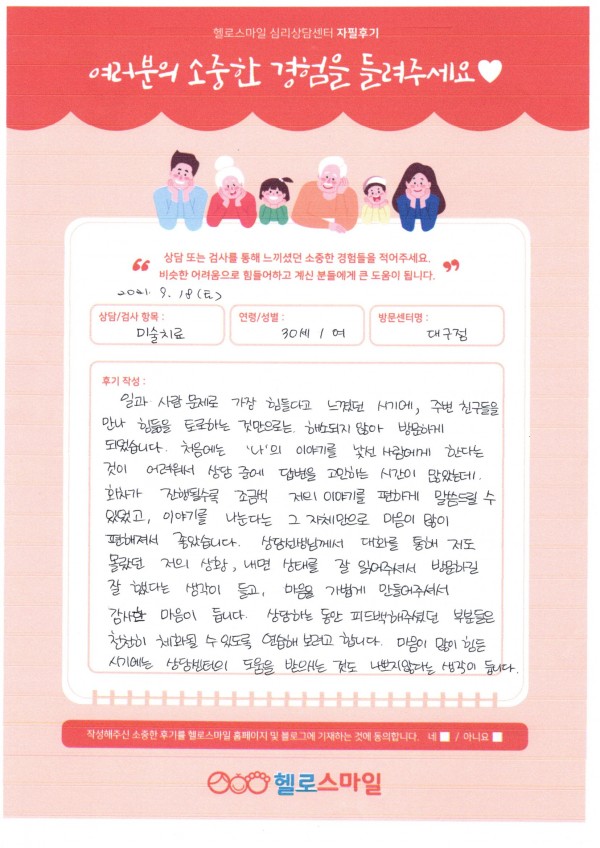 헬로스마일 심리상담센터 자필후기
여러분의 소중한 경험을 들려주세요
상담 또는 검사를 통해 느끼셨던 소중한 경험들을 적어주세요.
비슷한 어려움으로 힘들어하고 계신 분들에게 큰 도움이 됩니다.
2021. 9. 18 (토)
상담/검사 항목 :
미술치료
연령/성별 :
30세 / 여
방문센터명 :
대구점
후기 작성 :
일과 사람 문제로 가장 힘들다고 느꼈던 시기에, 주변 친구들을
만나 힘듦을 토로하는 것만으로는 해소되지 않아 방문하게
되었습니다. 처음에는 '나'의 이야기를 낯선 사람에게 한다는
것이 어려워서 상담 중에 답변을 고민하는 시간이 많았는데.
회차가 진행될수록 조금씩 저의 이야기를 편하게 말씀드릴 수
있었고, 이야기를 나눈다는 그 자체만으로 마음이 많이
편해져서 좋았습니다. 상담선생님께서 대화를 통해 저도
몰랐던 저의 상황, 내면 상태를 잘 읽어주셔서 방문하길
잘 했다는 생각이 들고, 마음을 가볍게 만들어주셔서
감사한 마음이 듭니다. 상담하는 동안 피드백해주셨던 부분들은
천천히 체화될 수 있도록 연습해 보려고 합니다. 마음이 많이 힘든
시기에는 상담센터의 도움을 받으래는 것도 나쁘지않다는 생각이 듭니다.
작성해주신 소중한 후기를 헬로스마일 홈페이지 및 블로그에 기재하는 것에 동의합니다. 네 / 아니요
헬로스마일